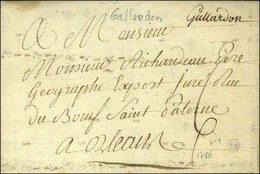 Gallardon
Gallardon
A Monsieur
Monsieur Richardeau Pere
Geographe Expert juré Rue
du Boeuf Saint Paterne
6
a orleans
1786